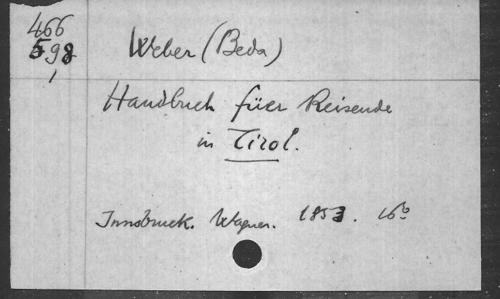 466
598
Weber (Beda)
Handbuch füer Reisende
in Tirol.
Innsbruck. Wagner. 1853. 16º